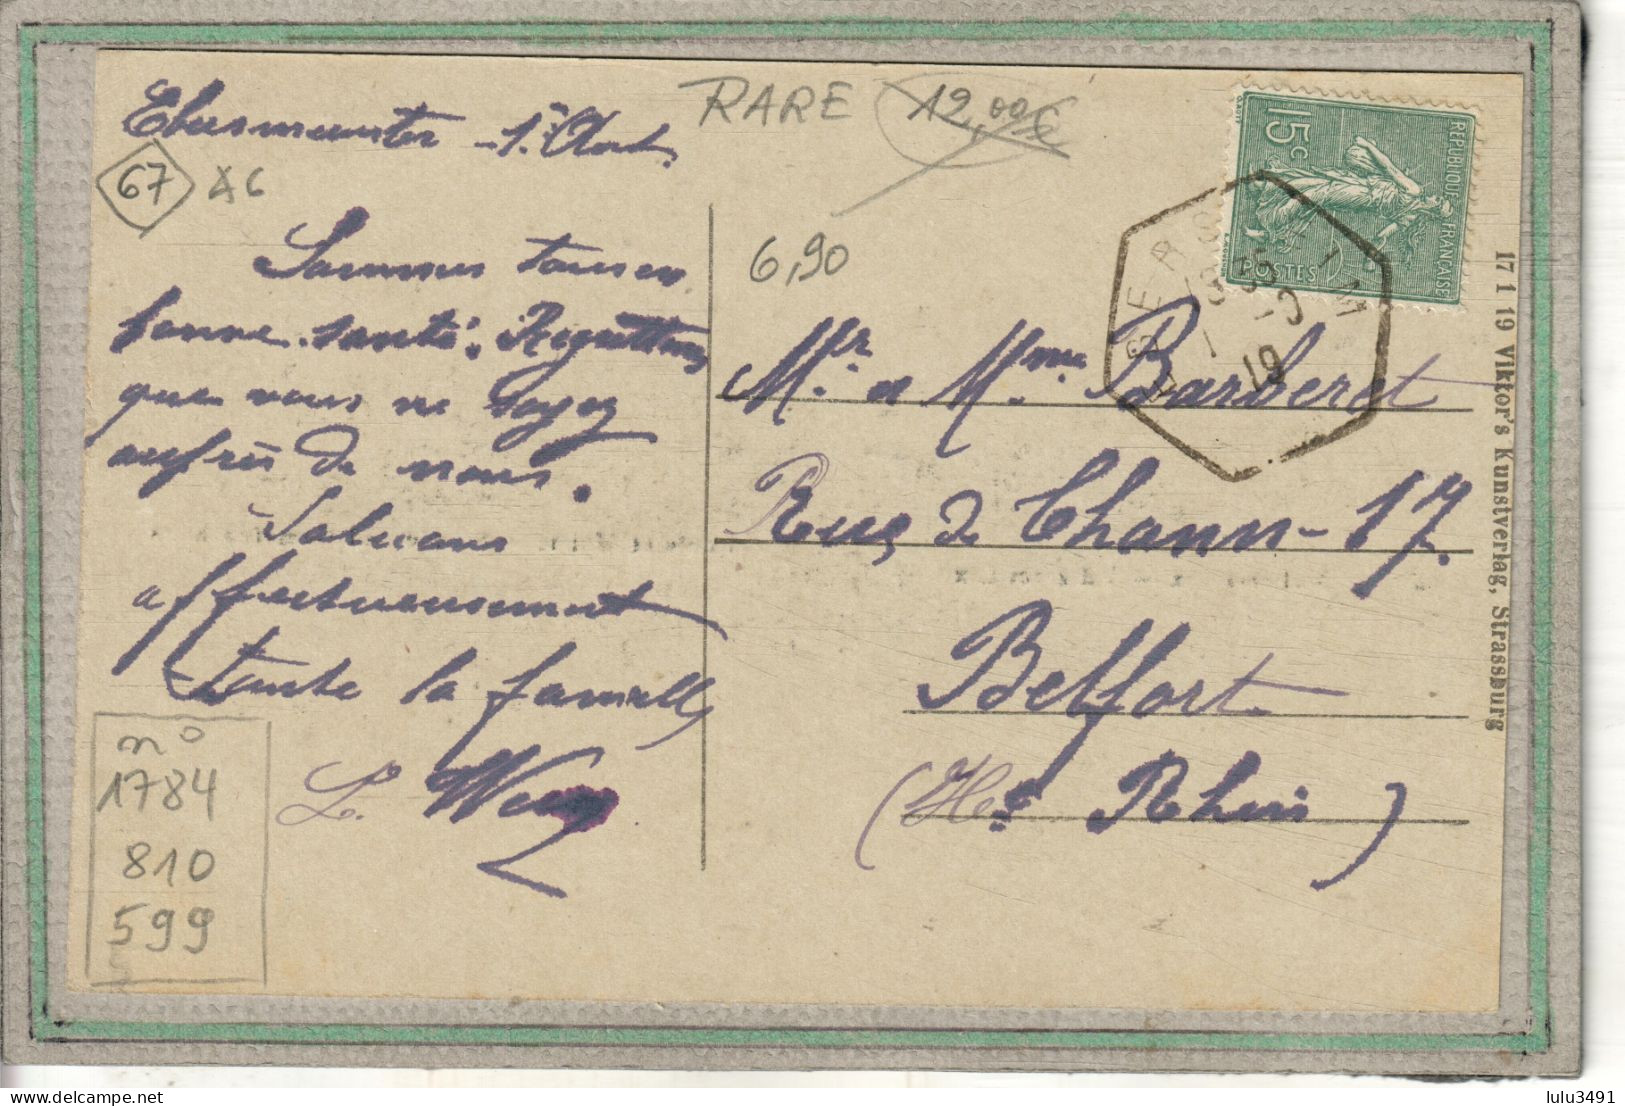 Ebersmunster - 1er Août.
RARE 12,00€
67 A6
6,90
Sommes tous en
bonne santé. Regrettons
que vous ne soyez
auprès de nous.
Saluons
affectueusement
toute la famille
n°
1784
810
599
RÉPUBLIQUE FRANÇAISE
15c
POSTES
19
Mr. et Mme Barberet
Rue de Chann - 17.
Belfort
(Ht Rhin)
17 1 19 Viktor's Kunstverlag, Strassburg
lulu3491